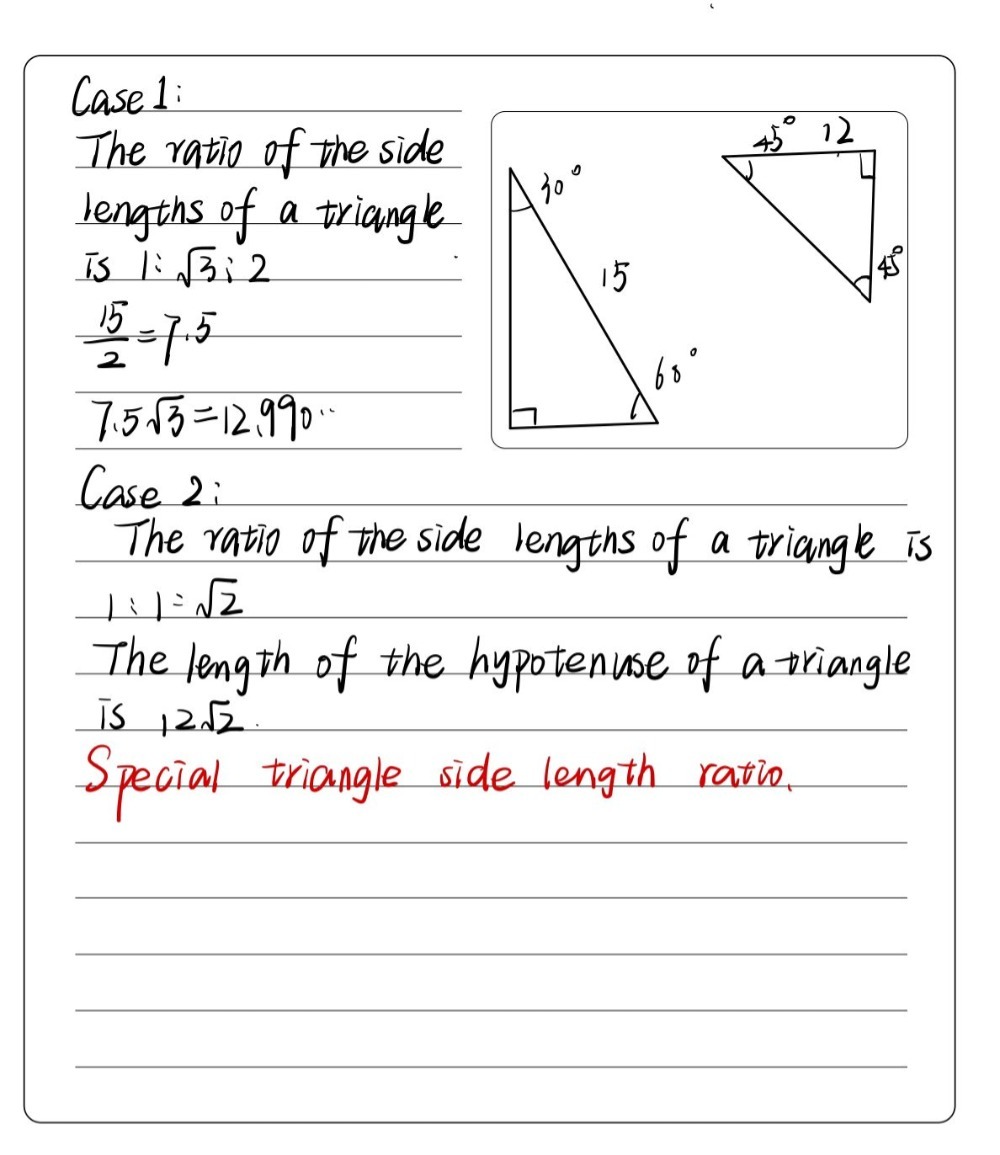 Case 1:
The ratio of the side
lengths of a triangle
is 1:√3:2
15/2=7.5
7.5√3=12.990...
30°
15
60°
45° 12
45°
Case 2:
The ratio of the side lengths of a triangle is
1:1=√2
The length of the hypotenuse of a triangle
is 12√2.
Special triangle side length ratio.